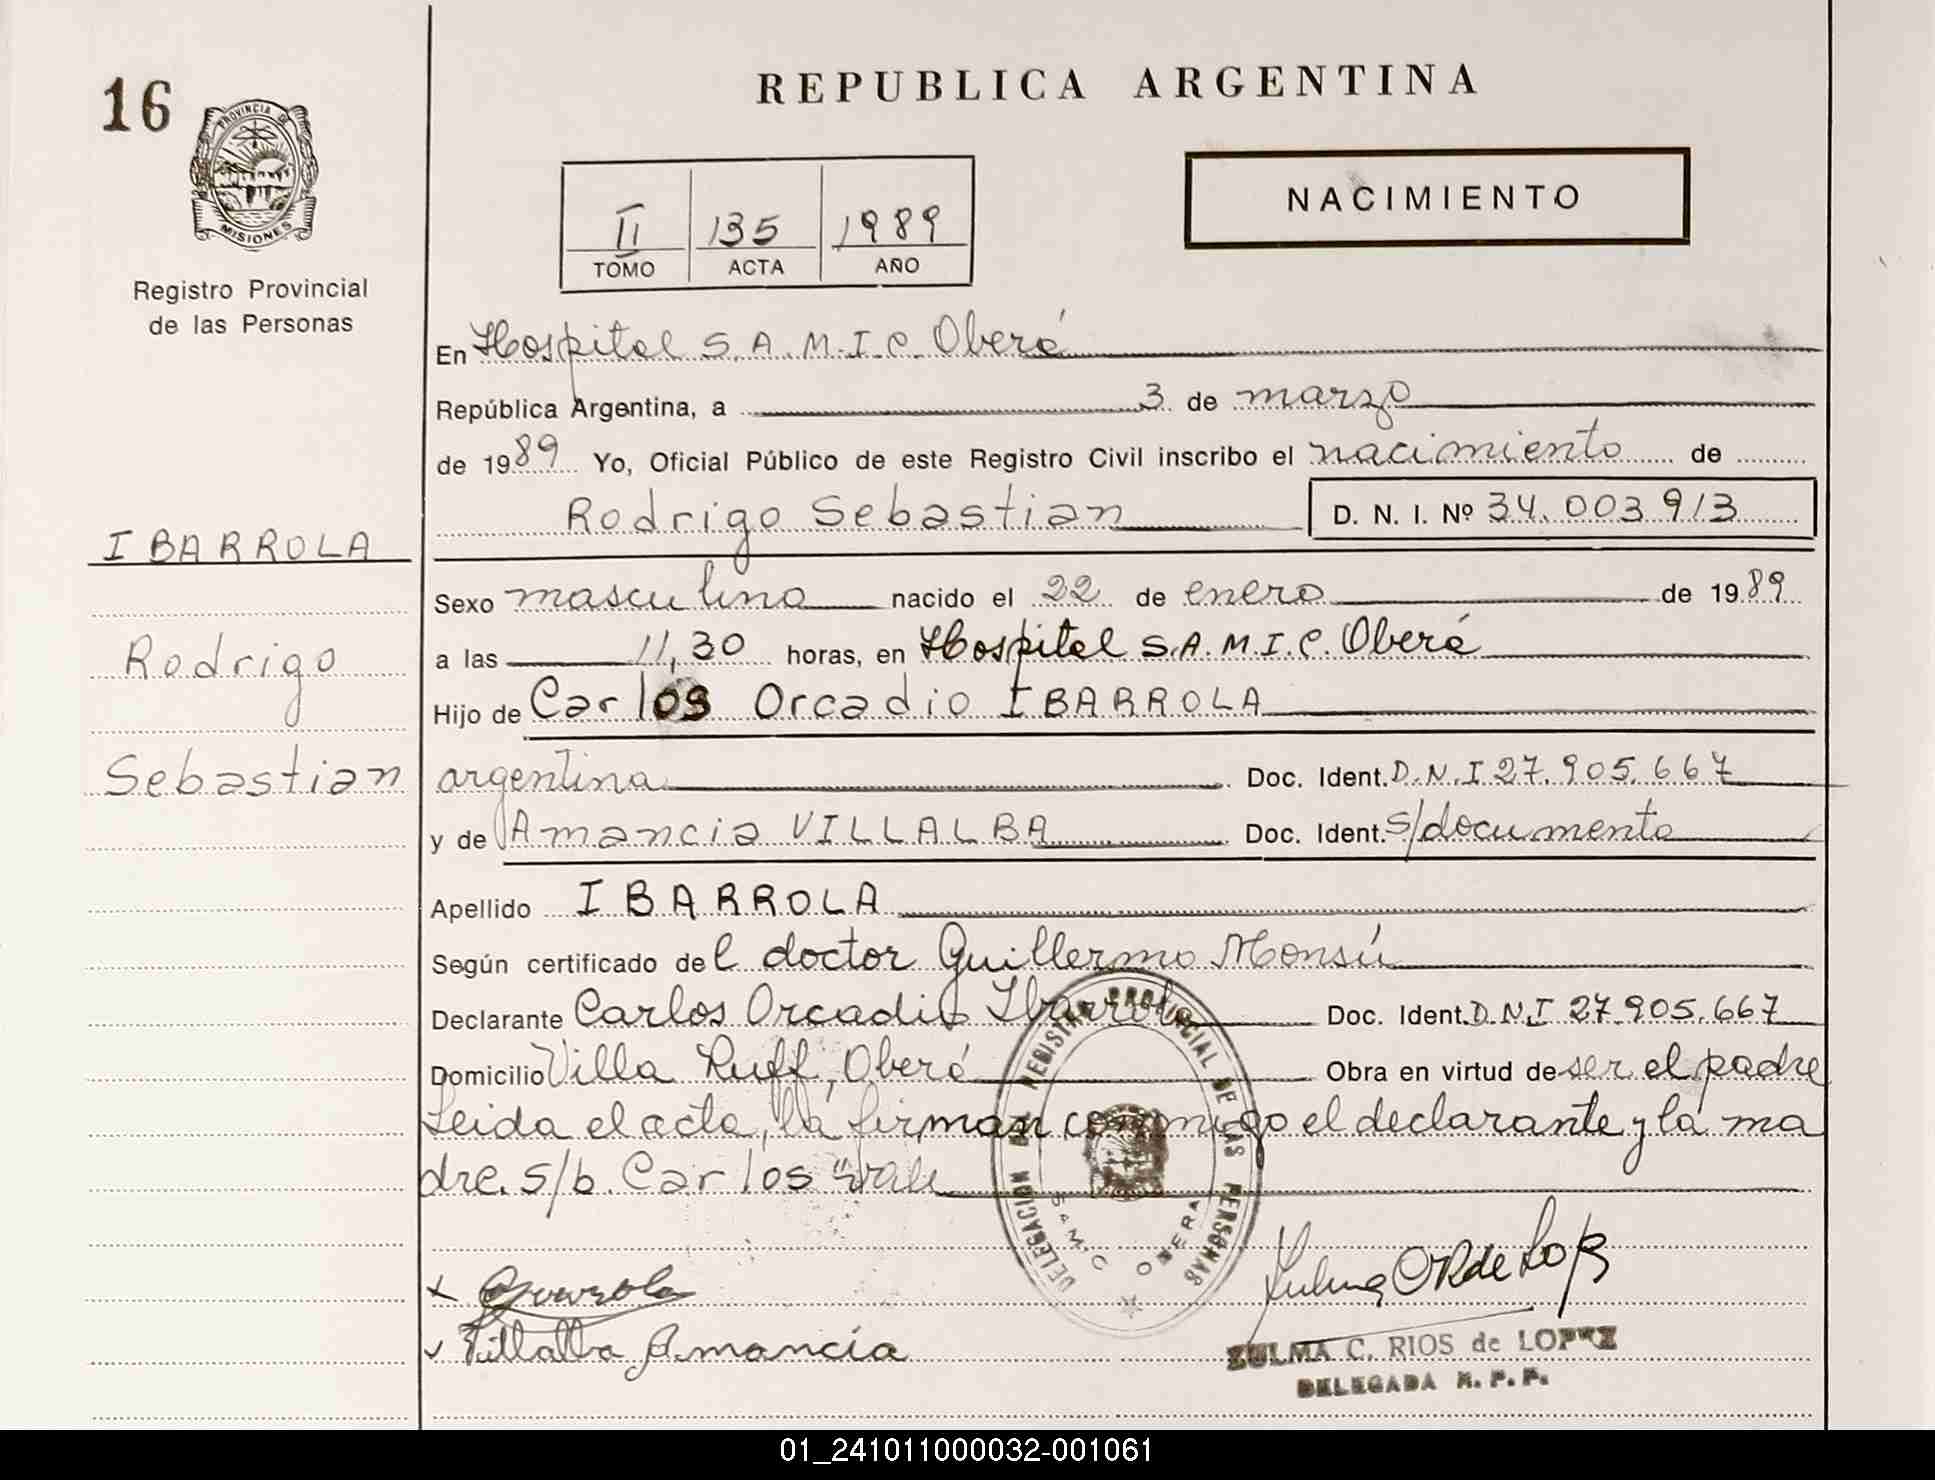 16
PROVINCIA DE
MISIONES
Registro Provincial
de las Personas
REPUBLICA ARGENTINA
NACIMIENTO
II 135 1989
TOMO ACTA AÑO
En Hospital S.A.M.I.C. Oberá
República Argentina, a 3 de marzo
de 1989 Yo, Oficial Público de este Registro Civil inscribo el nacimiento de
Rodrigo Sebastian D. N. I. Nº 34.003.913
IBARROLA
Rodrigo
Sebastian
Sexo masculino nacido el 22 de enero de 1989
a las 11,30 horas, en Hospital S.A.M.I.C. Oberá
Hijo de Carlos Orcadio IBARROLA
argentina Doc. Ident. D.N.I 27.905.667
y de Amancia VILLALBA Doc. Ident. s/documento
Apellido IBARROLA
Según certificado del doctor Guillermo Monsú
Declarante Carlos Orcadio Ibarrola Doc. Ident. D.N.I 27.905.667
Domicilio Villa Ruff, Oberá Obra en virtud de ser el padre
Leida el acta, la firman conmigo el declarante y la ma
dre. s/b. Carlos "Vale
DELEGACION DEL REGISTRO PROVINCIAL DE LAS PERSONAS
SAMIC OBERA
x Ibarrola
Villalba Amancia
Zulma C R de Lopez
ZULMA C. RIOS de LOPEZ
DELEGADA R. P. P.
01_241011000032-001061